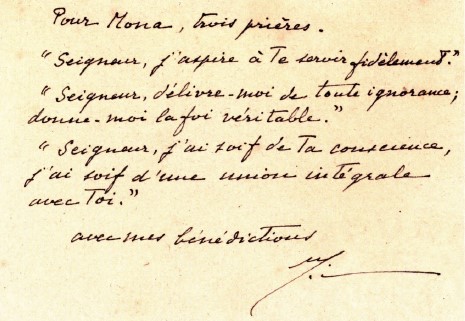 Pour Mona, trois prières.
"Seigneur, j'aspire à Te servir fidèlement."
"Seigneur, délivre-moi de toute ignorance;
donne-moi la foi véritable."
"Seigneur, j'ai soif de Ta conscience,
j'ai soif d'une union intégrale
avec Toi."
avec mes bénédictions